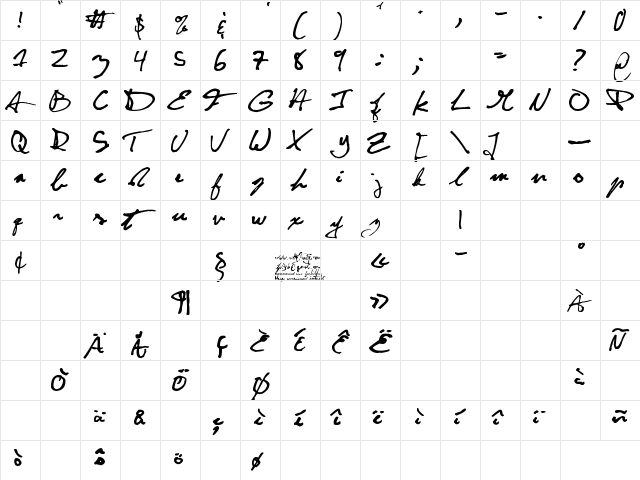 ! " # $ % & ' ( ) * + , - . / 0
1 2 3 4 5 6 7 8 9 : ; = ? @
A B C D E F G H I J K L M N O P
Q R S T U V W X Y Z [ \ ] —
a b c d e f g h i j k l m n o p
q r s t u v w x y z |
¢ § « ¯ °
¶ » À
Ä Å ç È É Ê Ë Ñ
Ò Ö Ø à
ä & ç è é ê ë ì í î ï ñ
ò ô ö ø